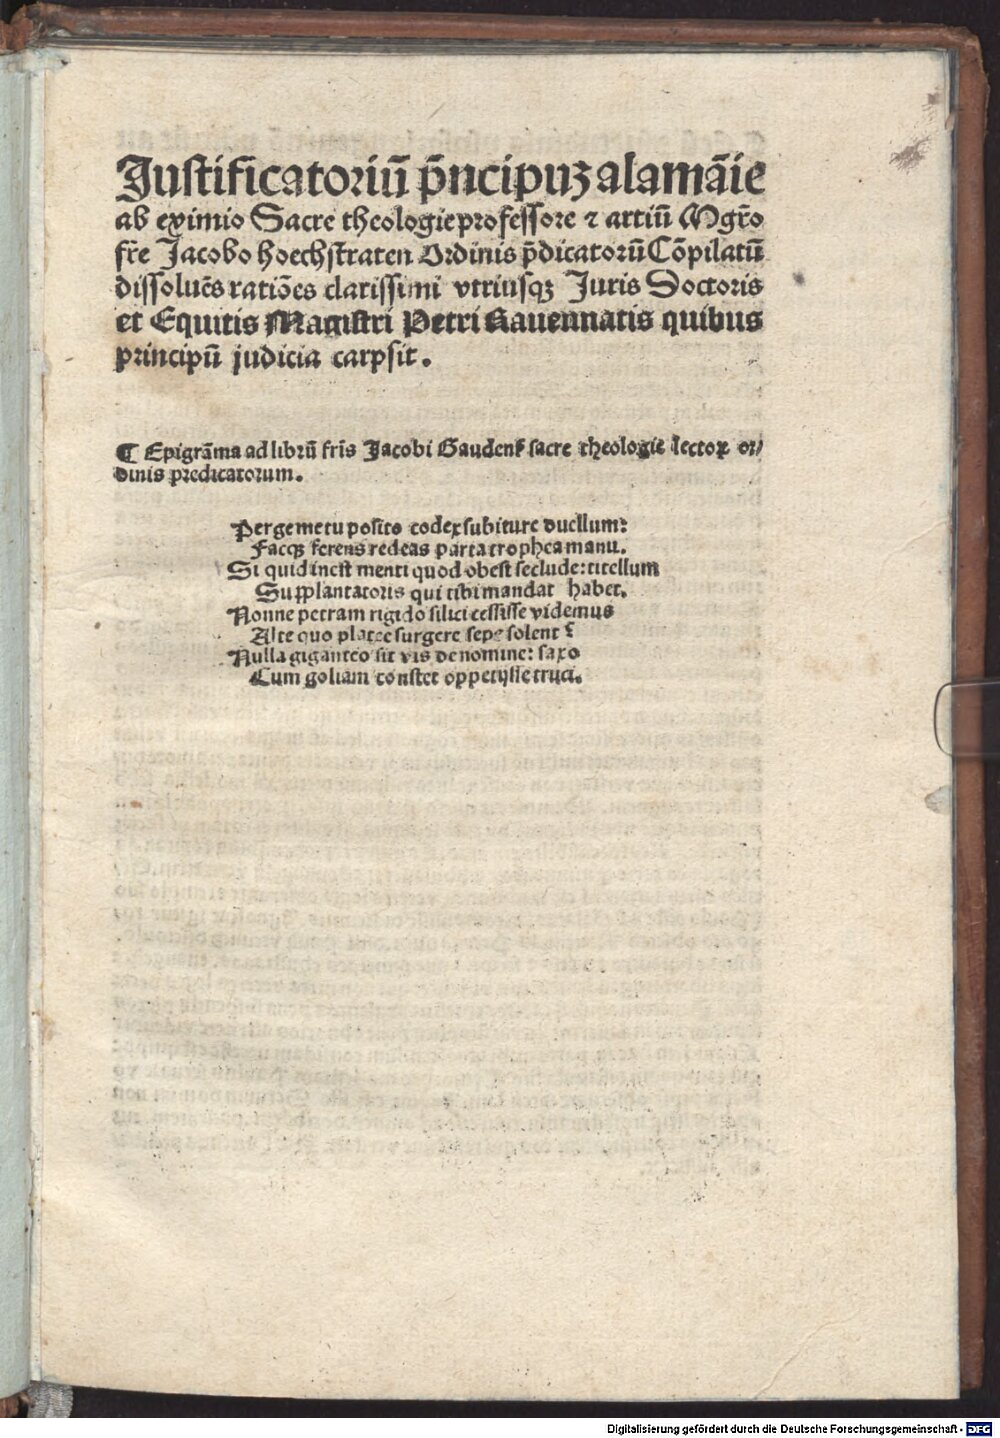 Iustificatoriū p̄ncipuꝫ alamāie
ab eximio Sacre theologie professore ⁊ artiū Mgr̄o
fr̄e Jacobo hoechstraten Ordinis p̄dicatorū Cōpilatū
dissoluēs ratiōes clarissimi vtriusqꝫ Juris Doctoris
et Equitis Magistri Petri Rauennatis quibus
principū judicia carpsit.
¶ Epigrāma ad librū fr̄is Jacobi Gaudenꝭ sacre theologie lectorꝭ or/
dinis predicatorum.
Perge metu posito codex subiture duellum:
Facqꝫ ferens redeas parta trophea manu.
Si quid inest menti quod obest seclude: titellum
Supplantatoris qui tibi mandat habet.
Nonne petram rigido silici cessisse videmus
Alte quo platee surgere sepe solent?
Nulla giganteo sit vis de nomine: saxo
Cum goliam constet oppetijsse truci.
Digitalisierung gefördert durch die Deutsche Forschungsgemeinschaft - DFG